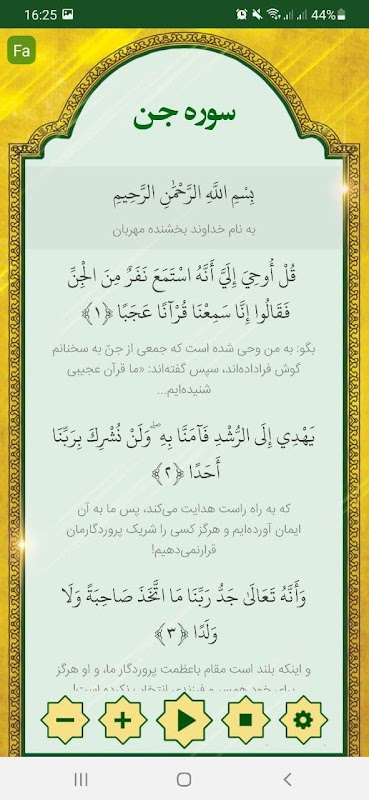 16:25
44%
Fa
سوره جن
بِسْمِ اللَّهِ الرَّحْمَٰنِ الرَّحِيمِ
به نام خداوند بخشنده مهربان
قُلْ أُوحِيَ إِلَيَّ أَنَّهُ اسْتَمَعَ نَفَرٌ مِنَ الْجِنِّ
فَقَالُوا إِنَّا سَمِعْنَا قُرْآنًا عَجَبًا ﴿١﴾
بگو: به من وحی شده است که جمعی از جنّ به سخنانم
گوش فراداده‌اند، سپس گفته‌اند: «ما قرآن عجیبی
شنیده‌ایم...
يَهْدِي إِلَى الرُّشْدِ فَآمَنَّا بِهِ ۖ وَلَنْ نُشْرِكَ بِرَبِّنَا
أَحَدًا ﴿٢﴾
که به راه راست هدایت می‌کند، پس ما به آن
ایمان آورده‌ایم و هرگز کسی را شریک پروردگارمان
قرارنمی‌دهیم!
وَأَنَّهُ تَعَالَىٰ جَدُّ رَبِّنَا مَا اتَّخَذَ صَاحِبَةً وَلَا
وَلَدًا ﴿٣﴾
و اینکه بلند است مقام باعظمت پروردگار ما، و او هرگز
برای خود همسر و فرزندی انتخاب نکرده است!